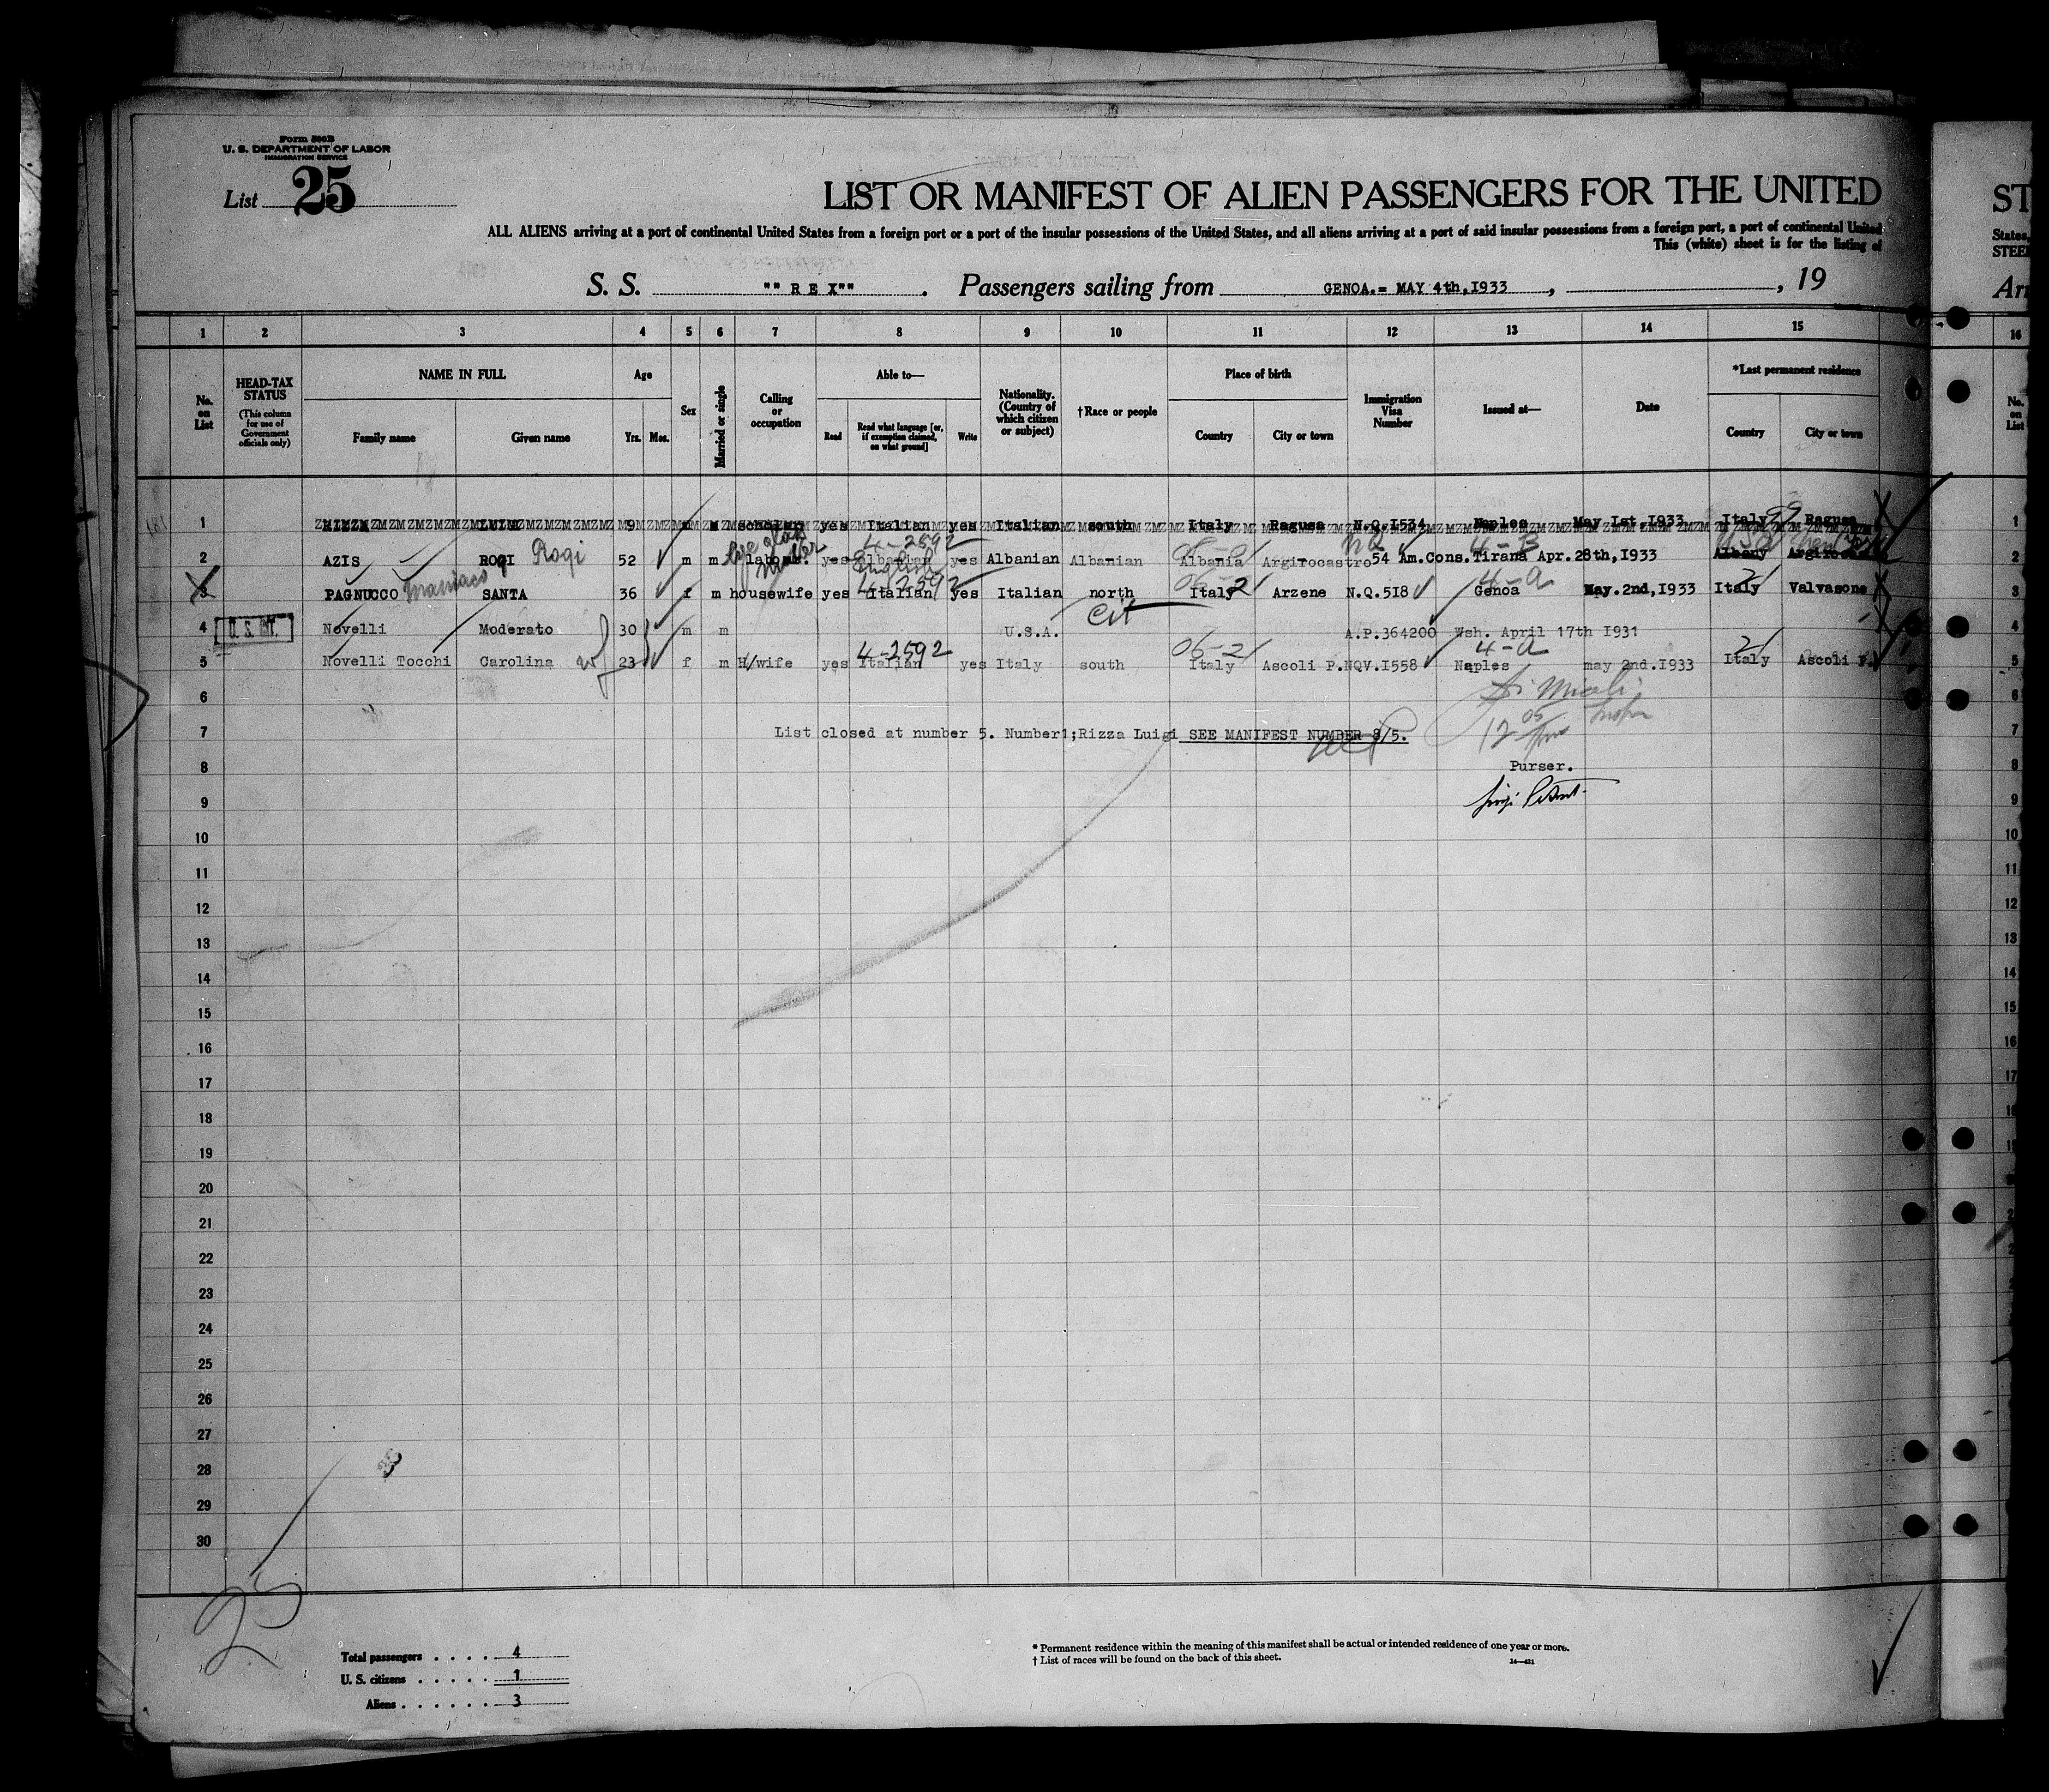 Form 500B
U. S. DEPARTMENT OF LABOR
IMMIGRATION SERVICE
List 25
LIST OR MANIFEST OF ALIEN PASSENGERS FOR THE UNITED
ST
ALL ALIENS arriving at a port of continental United States from a foreign port or a port of the insular possessions of the United States, and all aliens arriving at a port of said insular possessions from a foreign port, a port of continental United
States,
This (white) sheet is for the listing of
STEE
S. S. "" R E X"" . Passengers sailing from GENOA.= MAY 4th,I933 , , 19
Arr
1 2 3 4 5 6 7 8 9 10 11 12 13 14 15 16
No. on List
HEAD-TAX STATUS
(This column for use of Government officials only)
NAME IN FULL
Family name
Given name
Age
Yrs. Mos.
Sex
Married or single
Calling or occupation
Able to—
Read
Read what language [or, if exemption claimed, on what ground]
Write
Nationality. (Country of which citizen or subject)
†Race or people
Place of birth
Country
City or town
Immigration Visa Number
Issued at—
Date
*Last permanent residence
Country
City or town
No. on List
1 RIZZA LUIGI 9 m scholar yes Italian yes Italian south Italy Ragusa N.Q.I534 Naples May Ist.I933 Italy Ragusa 1
4-2592
2 AZIS ROQI Roqi 52 m m labour. yes Albanian yes Albanian Albanian Albania Argirocastro 54 Am.Cons.Tirana Apr.28th,I933 Albany 2
English
4-B
3 PAGNUCCO Maniaco SANTA 36 f m housewife yes Italian yes Italian north Italy Arzene N.Q.5I8 Genoa May.2nd,I933 Italy Valvasone 3
4-2592
06-2
4-a
2
Cit
4 Novelli Moderato 30 m m U.S.A. A.P.364200 Wsh. April 17th I931 4
5 Novelli Tocchi Carolina wf 23 f m H/wife yes Italian yes Italy south Italy Ascoli P. NQV.I558 Naples may 2nd.I933 Italy Ascoli P. 5
4-2592
06-2
4-a
2
6 6
7 List closed at number 5. Number1;Rizza Luigi SEE MANIFEST NUMBER 8/5. 7
12 05
8 Purser. 8
9 9
10 10
11 11
12 12
13 13
14 14
15 15
16 16
17 17
18
19
20
21
22
23
24
25
26
27
28
29
30
25
Total passengers . . . . . 4
U. S. citizens . . . . . 1
Aliens . . . . . . 3
* Permanent residence within the meaning of this manifest shall be actual or intended residence of one year or more.
† List of races will be found on the back of this sheet.